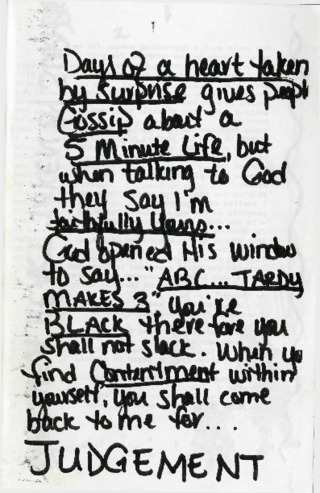 Days of a heart taken
by surprise gives peopl
Gossip about a
5 Minute Life, but
when talking to God
they say I'm
faithfully yours...
God opened His window
to say... "ABC... TARDY
MAKES 3" you're
BLACK therefore you
shall not slack. When yo
find Contentment within
yourself, you shall come
back to me for...
JUDGEMENT